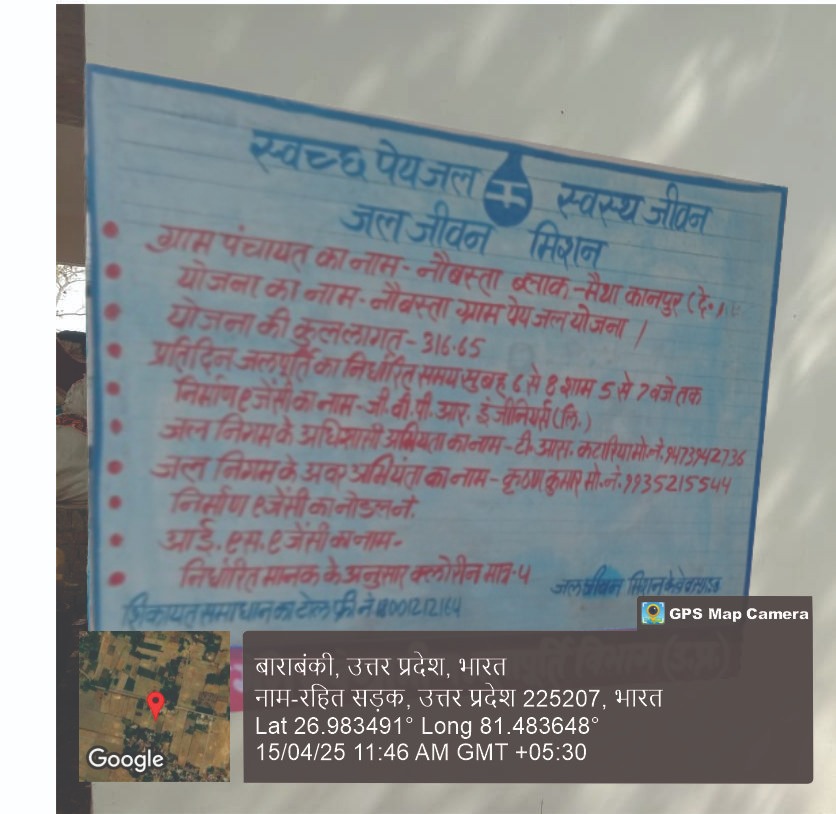 स्वच्छ पेयजल स्वस्थ जीवन
जल जीवन मिशन
ग्राम पंचायत का नाम - नौबस्ता ब्लाक - मैथा कानपुर (दे.)
योजना का नाम - नौबस्ता ग्राम पेयजल योजना /
योजना की कुल लागत - 316.65
प्रतिदिन जलपूर्ति का निर्धारित समय सुबह 6 से 8 शाम 5 से 7 बजे तक
निर्माण एजेंसी का नाम - जी. वी. पी. आर. इंजीनियर्स (लि.)
जल निगम के अधिशासी अभियंता का नाम - टी. आस. कटारिया मो. नं. 9473942736
जल निगम के अवर अभियंता का नाम - कृष्ण कुमार मो. नं. 9935215544
निर्माण एजेंसी का नोडल नं.
आई. एस. एजेंसी का नाम -
निर्धारित मानक के अनुसार क्लोरीन मात्र - 4
जल जीवन मिशन के
शिकायत समाधान का टोल फ्री नं 18001212164
GPS Map Camera
बाराबंकी, उत्तर प्रदेश, भारत
नाम-रहित सड़क, उत्तर प्रदेश 225207, भारत
Lat 26.983491° Long 81.483648°
15/04/25 11:46 AM GMT +05:30
Google